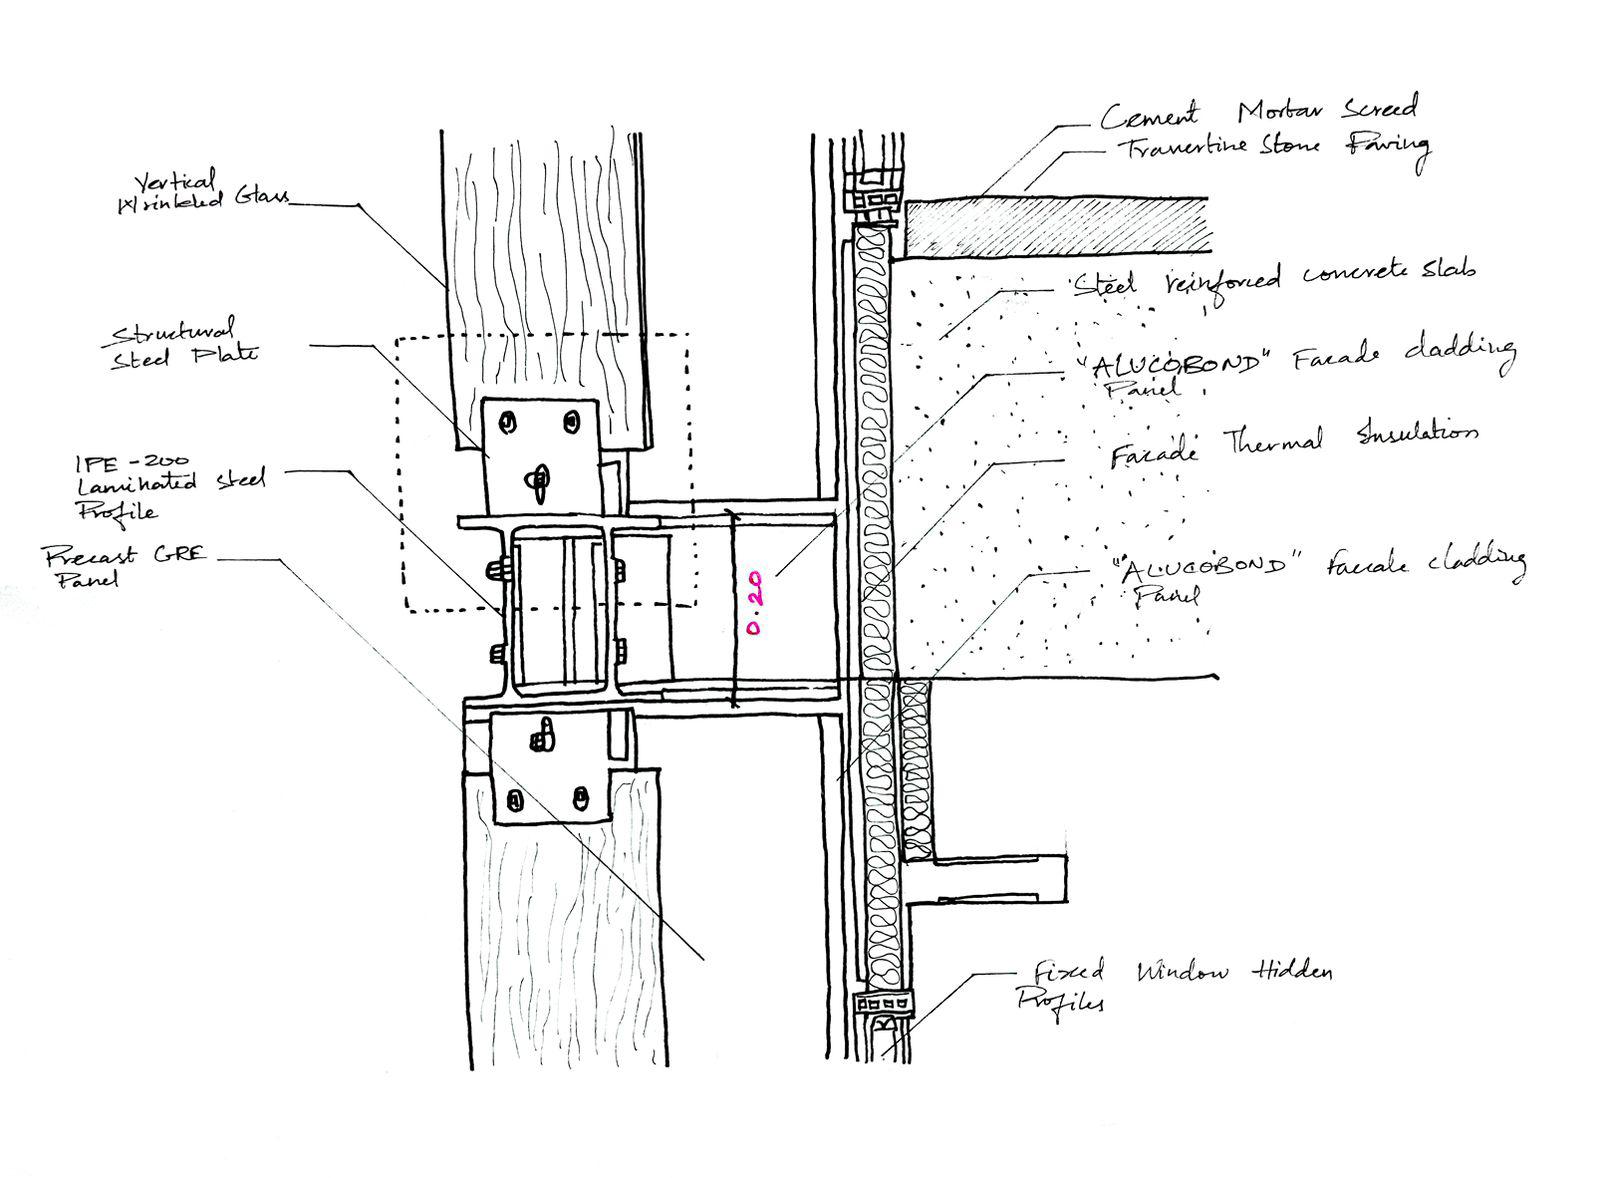 Vertical
Wrinkled Glass
Structural
Steel Plate
IPE - 200
Laminated steel
Profile
Precast GRE
Panel
0.20
Cement Mortar Screed
Travertine Stone Paving
Steel reinforced concrete slab
"ALUCOBOND" Facade cladding
Panel
Facade Thermal Insulation
"ALUCOBOND" Facade cladding
Panel
Fixed Window Hidden
Profiles